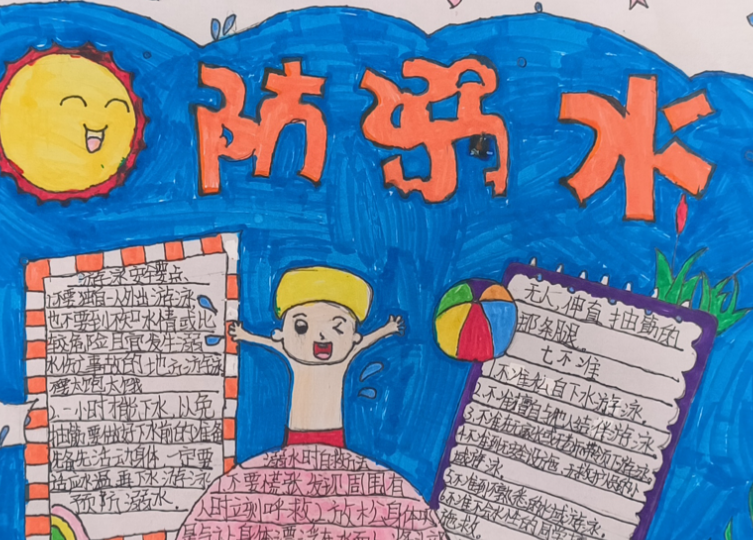 防溺水
游泳安全要点
1.不要独自一人外出游泳,
也不要到不
较危险且宜发生溺
水伤亡事故的地
2.一小时才能下水,以免
抽筋,要做好下水前的准备
先洗
适应水温再下水游泳
预防溺水.
溺水时自救
不要慌张,发现周围有
人时立刻呼救)放松身体
让身体漂浮在水面上
无人,伸直抽筋的
那条腿.
七不准
1.不准私自下水游泳.
2.不准擅自与他人结伴游泳.
3.不准在无家长或老师带领下游泳
4.不准到无安全设施、无救护人员的水
域游泳.
5.不准到不熟悉的水域游泳.
6.不准不会水性的同学
施救.